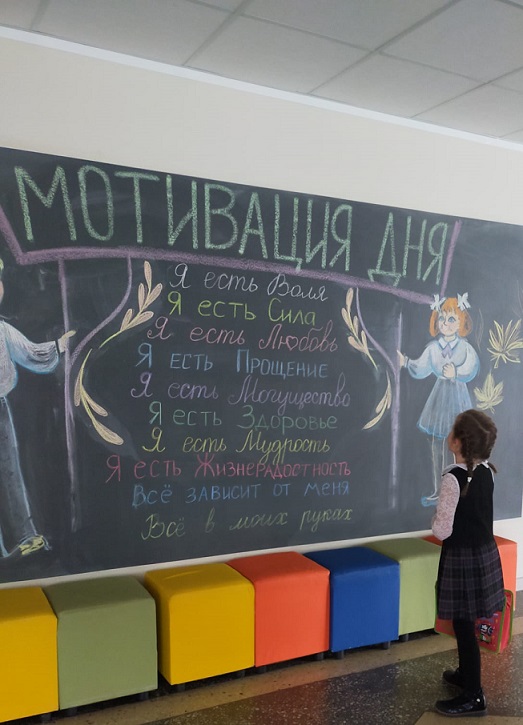 МОТИВАЦИЯ ДНЯ
Я есть Воля
Я есть Сила
Я есть Любовь
Я есть Прощение
Я есть Могущество
Я есть Здоровье
Я есть Мудрость
Я есть Жизнерадостность
Всё зависит от меня
Всё в моих руках